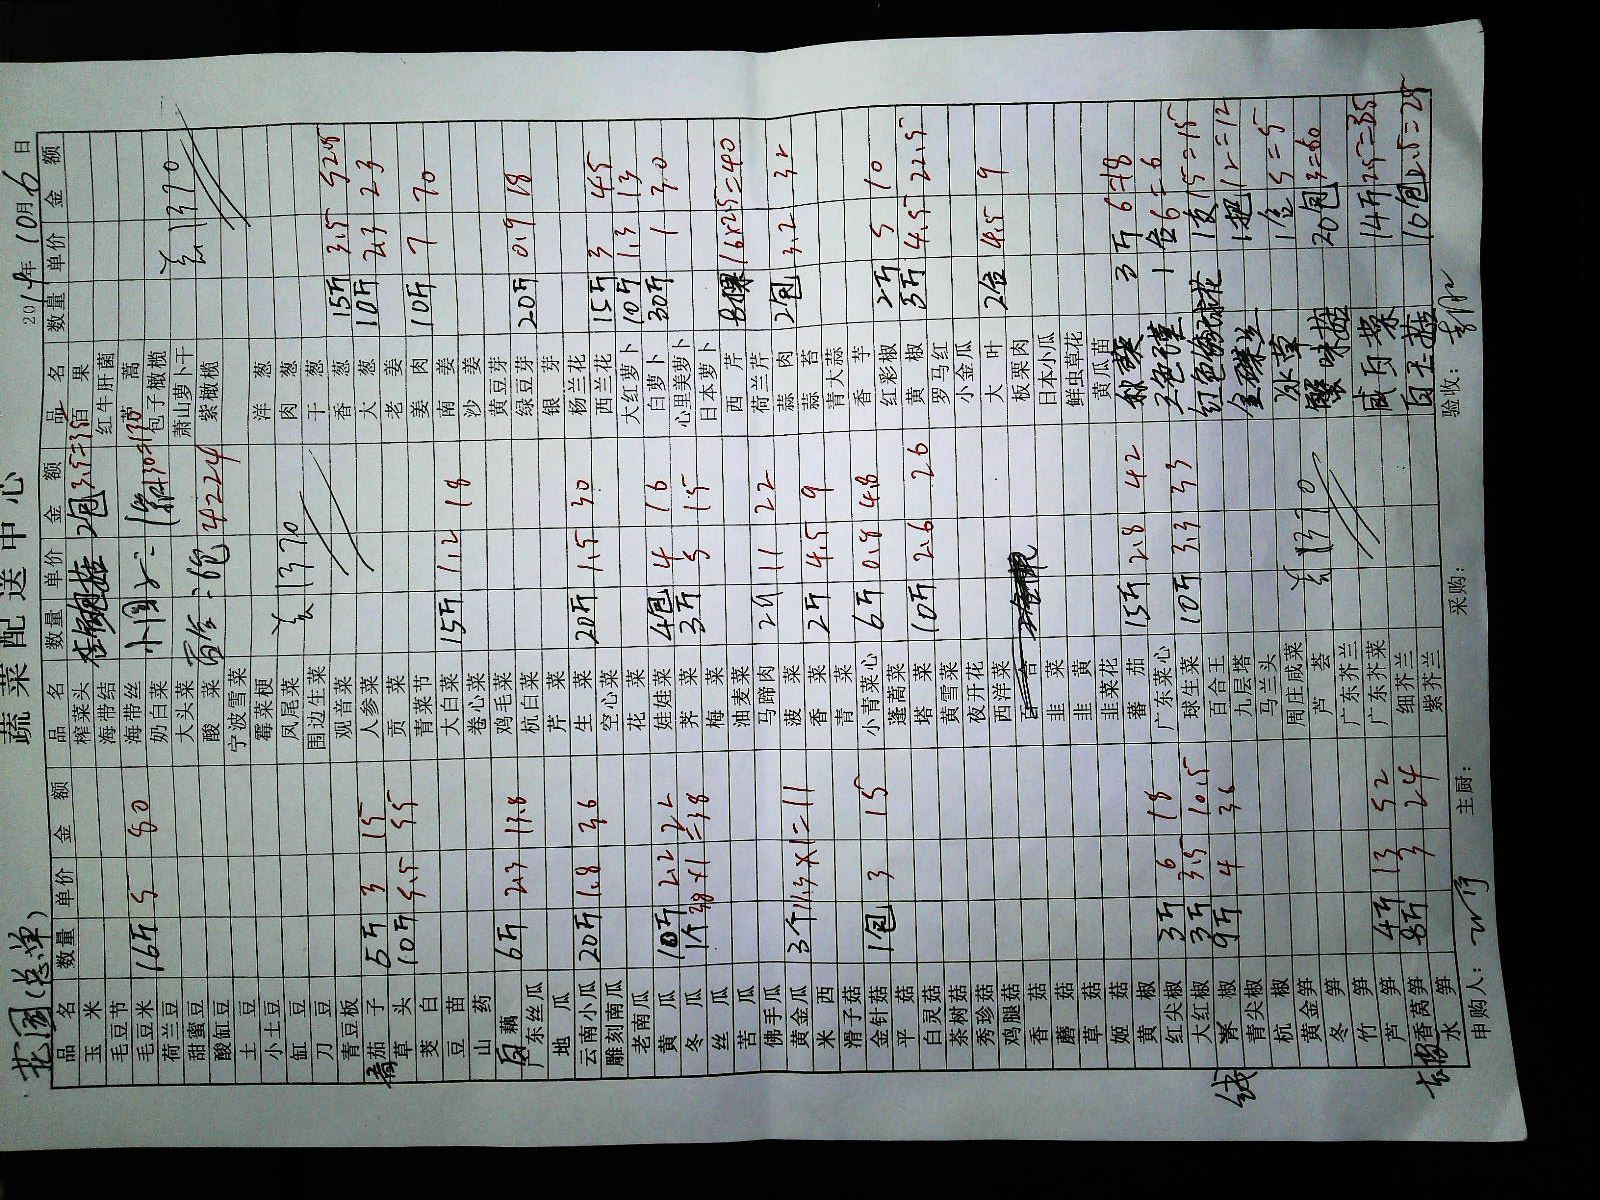 蔬菜配送中心
花园(总单)
2014年10月6日
品名 数量 单价 金额
玉米
毛豆节
毛豆米 16斤 5 80
荷兰豆
甜蜜豆
酸豇豆
土豆
小土豆
豇豆
刀豆
青豆板
茄子 5斤 3 15
草头 10斤 5.5 55
茭白
豆苗
山药
白藕 6斤 2.3 13.8
广东丝瓜
地瓜
云南小瓜 20斤 1.8 36
雕刻南瓜
老南瓜
黄瓜 10斤 2.2 22
冬瓜 1个 38×1=38
丝瓜
苦瓜
佛手瓜
黄金瓜 3个 11.3×1=11
米西
滑子菇
金针菇 1包 3 15
平菇
白灵菇
茶树菇
秀珍菇
鸡腿菇
香菇
蘑菇
草菇
姬菇
黄椒
红尖椒 3斤 6 18
大红椒 3斤 3.5 10.5
青椒 9斤 4 36
青尖椒
杭椒
黄金笋
冬笋
竹笋
芦笋 4斤 13 52
香莴笋 8斤 3 24
水笋
品名 数量 单价 金额
榨菜头 2包 3.5=35
海带结
海带丝
奶白菜
大头菜
酸菜 4224
宁波雪菜
霉菜梗
凤尾菜 1370
围边生菜
观音菜
人参菜
贡菜
青菜节
大白菜 15斤 1.2 18
卷心菜
鸡毛菜
杭白菜
芹菜
生菜 20斤 1.5 30
空心菜
花菜
娃娃菜 4包 4 16
荠菜 3斤 5 15
梅菜
油麦菜
马蹄肉 2斤 11 22
菠菜
香菜 2斤 4.5 9
青菜
小青菜心 6斤 0.8 4.8
蓬蒿菜
塔菜 10斤 2.6 26
黄雪菜
夜开花
西洋菜
韭菜
韭黄
韭菜花
蕃茄 15斤 2.8 42
广东菜心
球生菜 10斤 3.3 33
百合王
九层塔
马兰头
周庄咸菜
芦荟 1370
广东芥兰
广东芥菜
细芥兰
紫芥兰
品名 数量 单价 金额
百果
红牛肝菌
茼蒿
包子橄榄
萧山萝卜干 1370
紫橄榄
洋葱
肉葱
干葱
香葱 15斤 3.5 52.5
大葱 10斤 2.3 23
老姜
姜肉 10斤 7 70
南姜
沙姜
黄豆芽
绿豆芽 20斤 0.9 18
银芽
杨兰花
西兰花 15斤 3 45
大红萝卜 10斤 1.3 13
白萝卜 30斤 1 30
心里美萝卜
日本萝卜
西芹 8棵 16×2.5=40
荷兰芹
蒜肉 2包 3.2 32
蒜苔
青大蒜
香芋
红彩椒 2斤 5 10
黄椒 5斤 4.5 22.5
罗马红
小金瓜
大叶 2合 4.5 9
板栗肉
日本小瓜
鲜虫草花
黄瓜苗
秋葵 3斤 6=18
1合 6=6
1支 15=15
1把 12=12
冰草 1合 5=5
蟹味菇 20包 3=60
咸白菜 14斤 2.5=35
白玉菇 10包 2.5=25
申购人: 主厨: 采购: 验收: